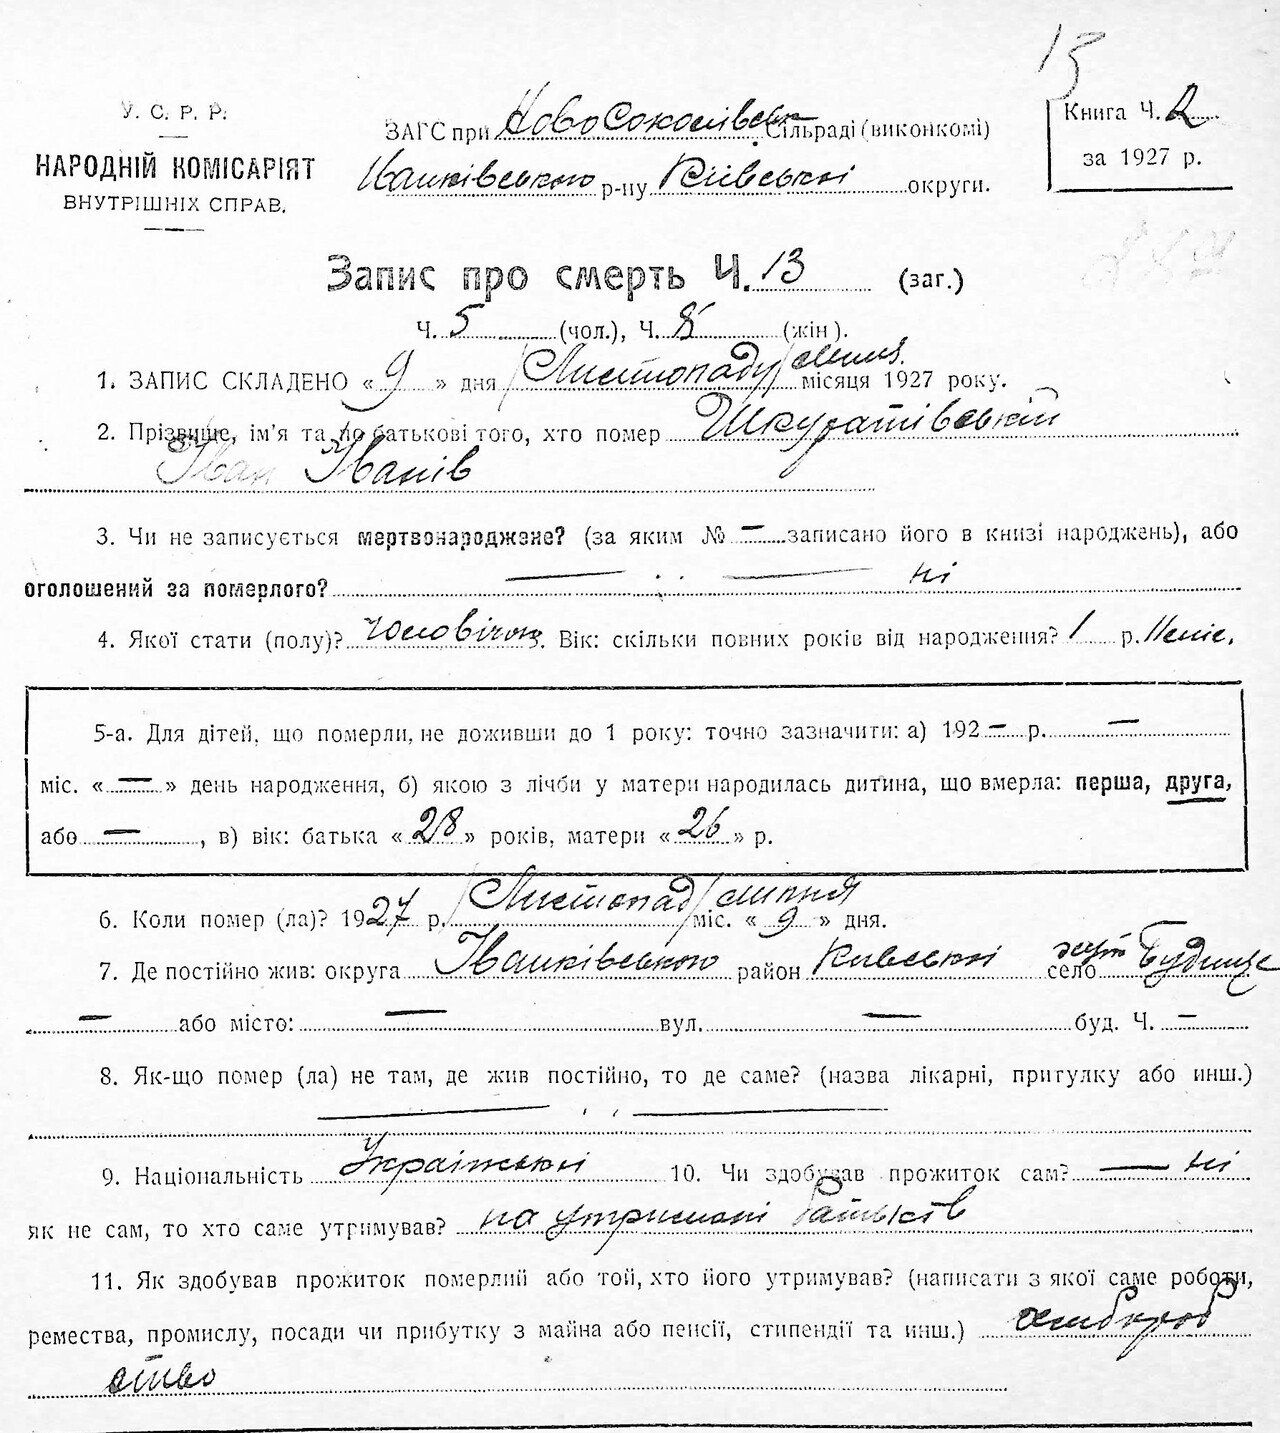 13
У. С. Р. Р.
НАРОДНІЙ КОМІСАРІЯТ
ВНУТРІШНІХ СПРАВ.
ЗАГС при НовоСоколівськ Сільраді (виконкомі)
Іванківського р-ну Київські округи.
Книга Ч. 2
за 1927 р.
Запис про смерть Ч. 13 (заг.)
Ч. 5 (чол.), Ч. 8 (жін).
1. ЗАПИС СКЛАДЕНО « 9 » дня (Листопаду) липня місяця 1927 року.
2. Прізвище, ім'я та по батькові того, хто помер Шкуратівський
Іван Іванів
3. Чи не записується мертвонароджене? (за яким № — записано його в книзі народжень), або
оголошений за померлого? — — ні
4. Якої статі (полу)? Чоловічої 5. Вік: скільки повних років від народження? 1 р.
5-а. Для дітей, що померли, не доживши до 1 року: точно зазначити: а) 192 — р. —
міс. « — » день народження, б) якою з лічби у матери народилась дитина, що вмерла: перша, друга,
або —, в) вік: батька « 28 » років, матери « 26 » р.
6. Коли помер (ла)? 1927 р. (Листопад) липня міс. « 9 » дня.
7. Де постійно жив: округа Іванківського район Київські село хут Будище
— або місто: — вул. — буд. Ч. —
8. Як-що помер (ла) не там, де жив постійно, то де саме? (назва лікарні, притулку або инш.)
— —
9. Національність Українські 10. Чи здобував прожиток сам? — ні
як не сам, то хто саме утримував? на утримані батьків
11. Як здобував прожиток померлий або той, хто його утримував? (написати з якої саме роботи,
ремества, промислу, посади чи прибутку з майна або пенсії, стипендії та инш.) хлібороб
ство